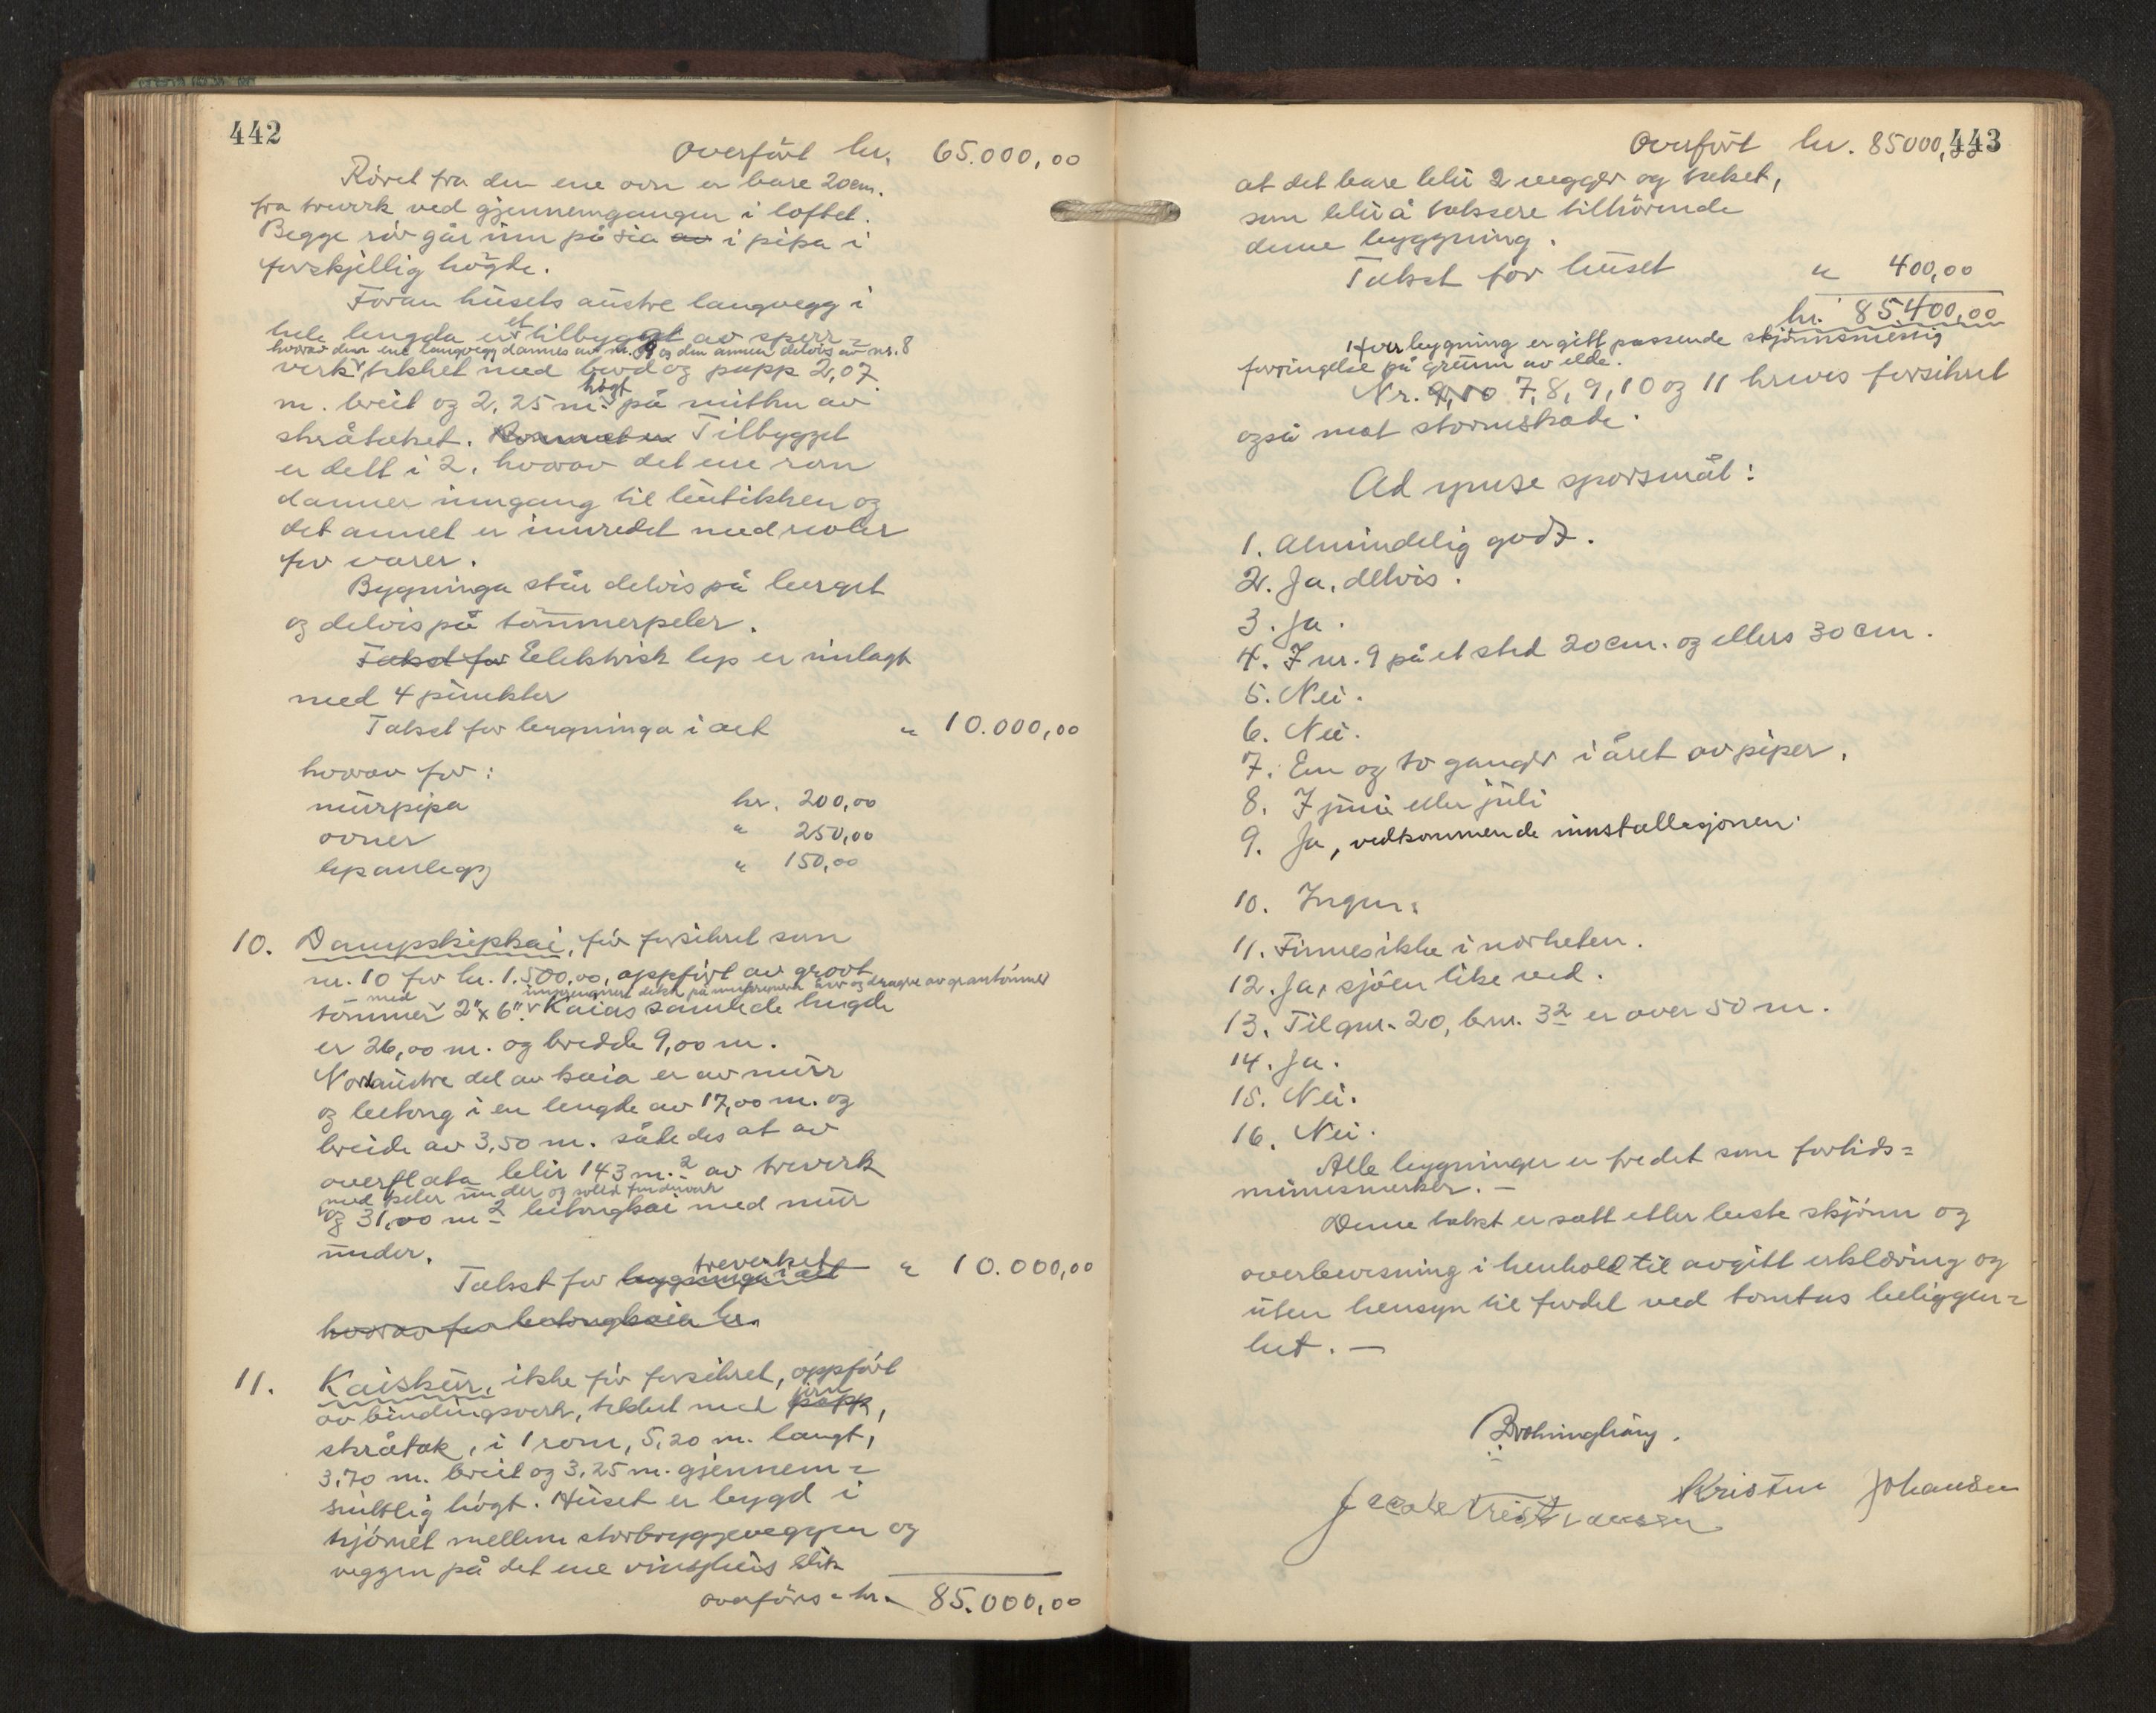 442
Overført kr. 65.000,00
Røret fra den ene ovn er bare 20 cm.
fra trverk ved gjennemgangen i loftet.
Begge rør går inn på sia av i pipa i
forskjellig høgde.
Foran husets austre langvegg i
hele lengda er et tilbygg av sperr-
hvorav den ene langvegg dannes av nr. 9 og den annen delvis av nr. 8
verk, tekket med bord og papp 2,07
m. breit og 2,25 m. høgt på mitten av
skråtaket. Rommet er Tilbygget
er delt i 2, hvorav det ene rom
danner inngang til butikken og
det annet er innredet med reoler
for varer.
Bygninga står delvis på berget
og delvis på tømmerpeler.
Takst for Eelektrisk lys er innlagt
med 4 punkter
Takst for bygninga i alt " 10.000,00
hvorav for:
murpipa kr. 200,00
ovner " 250,00
lysanlegg " 150,00
10. Dampskipskai, før forsikret som
nr. 10 for kr. 1.500,00, oppført av grovt
impregnert dekk på av og dragere av grantømmer
tømmer med 2" x 6". Kaias samlede lengde
er 26,00 m. og bredde 9,00 m.
Nordaustre del av kaia er av murr
og betong i en lengde av 17,00 m. og
breide av 3,50 m. således at av
overflata blir 143 m.2 av treverk
med peler under og solid
og 31,00 m2 betongkai med mur
under.
Takst for bygninga i alt treverket " 10.000,00
hvorav for betongkaia kr.
11. Kaiskur, ikke før forsikret, oppført
av bindingsverk, tekket med papp jern,
skråtak, i 1 rom, 5,20 m. langt,
3,70 m. breit og 3,25 m. gjennem-
snitlig høgt. Huset er bygd i
hjørnet mellem storbryggeveggen og
veggen på det ene vinsjhus slik
overføres kr. 85.000,00
443
Overført kr. 85000,00
at det bare blir 2 vegger og taket,
som blir å taksere tilhørende
denne byggning.
Takst for huset " 400,00
kr. 85.400,00
Hver bygning er gitt passende skjønsmessig
forringelse på grunn av elde.
Nr. 9, 10 7, 8, 9, 10 og 11 kreves forsikret
også mot stormskade.
Ad ymse spørsmål:
1. Almindelig godt.
2. Ja, delvis.
3. Ja.
4. I nr. 9 på et sted 20 cm. og ellers 30 cm.
5. Nei.
6. Nei.
7. Em og to ganger i året av piper.
8. I juni eller juli
9. Ja, vedkommende innstallasjonen.
10. Ingen.
11. Finnes ikke i nærheten.
12. Ja, sjøen like ved.
13. Til gnr. 20, bnr. 32 er over 50 m.
14. Ja.
15. Nei.
16. Nei.
Alle bygninger er fredet som fortids-
minnesmerker. —
Denne takst er satt etter beste skjønn og
overbevisning i henhold til avgitt erklæring og
uten hensyn til fordel ved tomtas beliggen-
het. —
Kristen Johansen